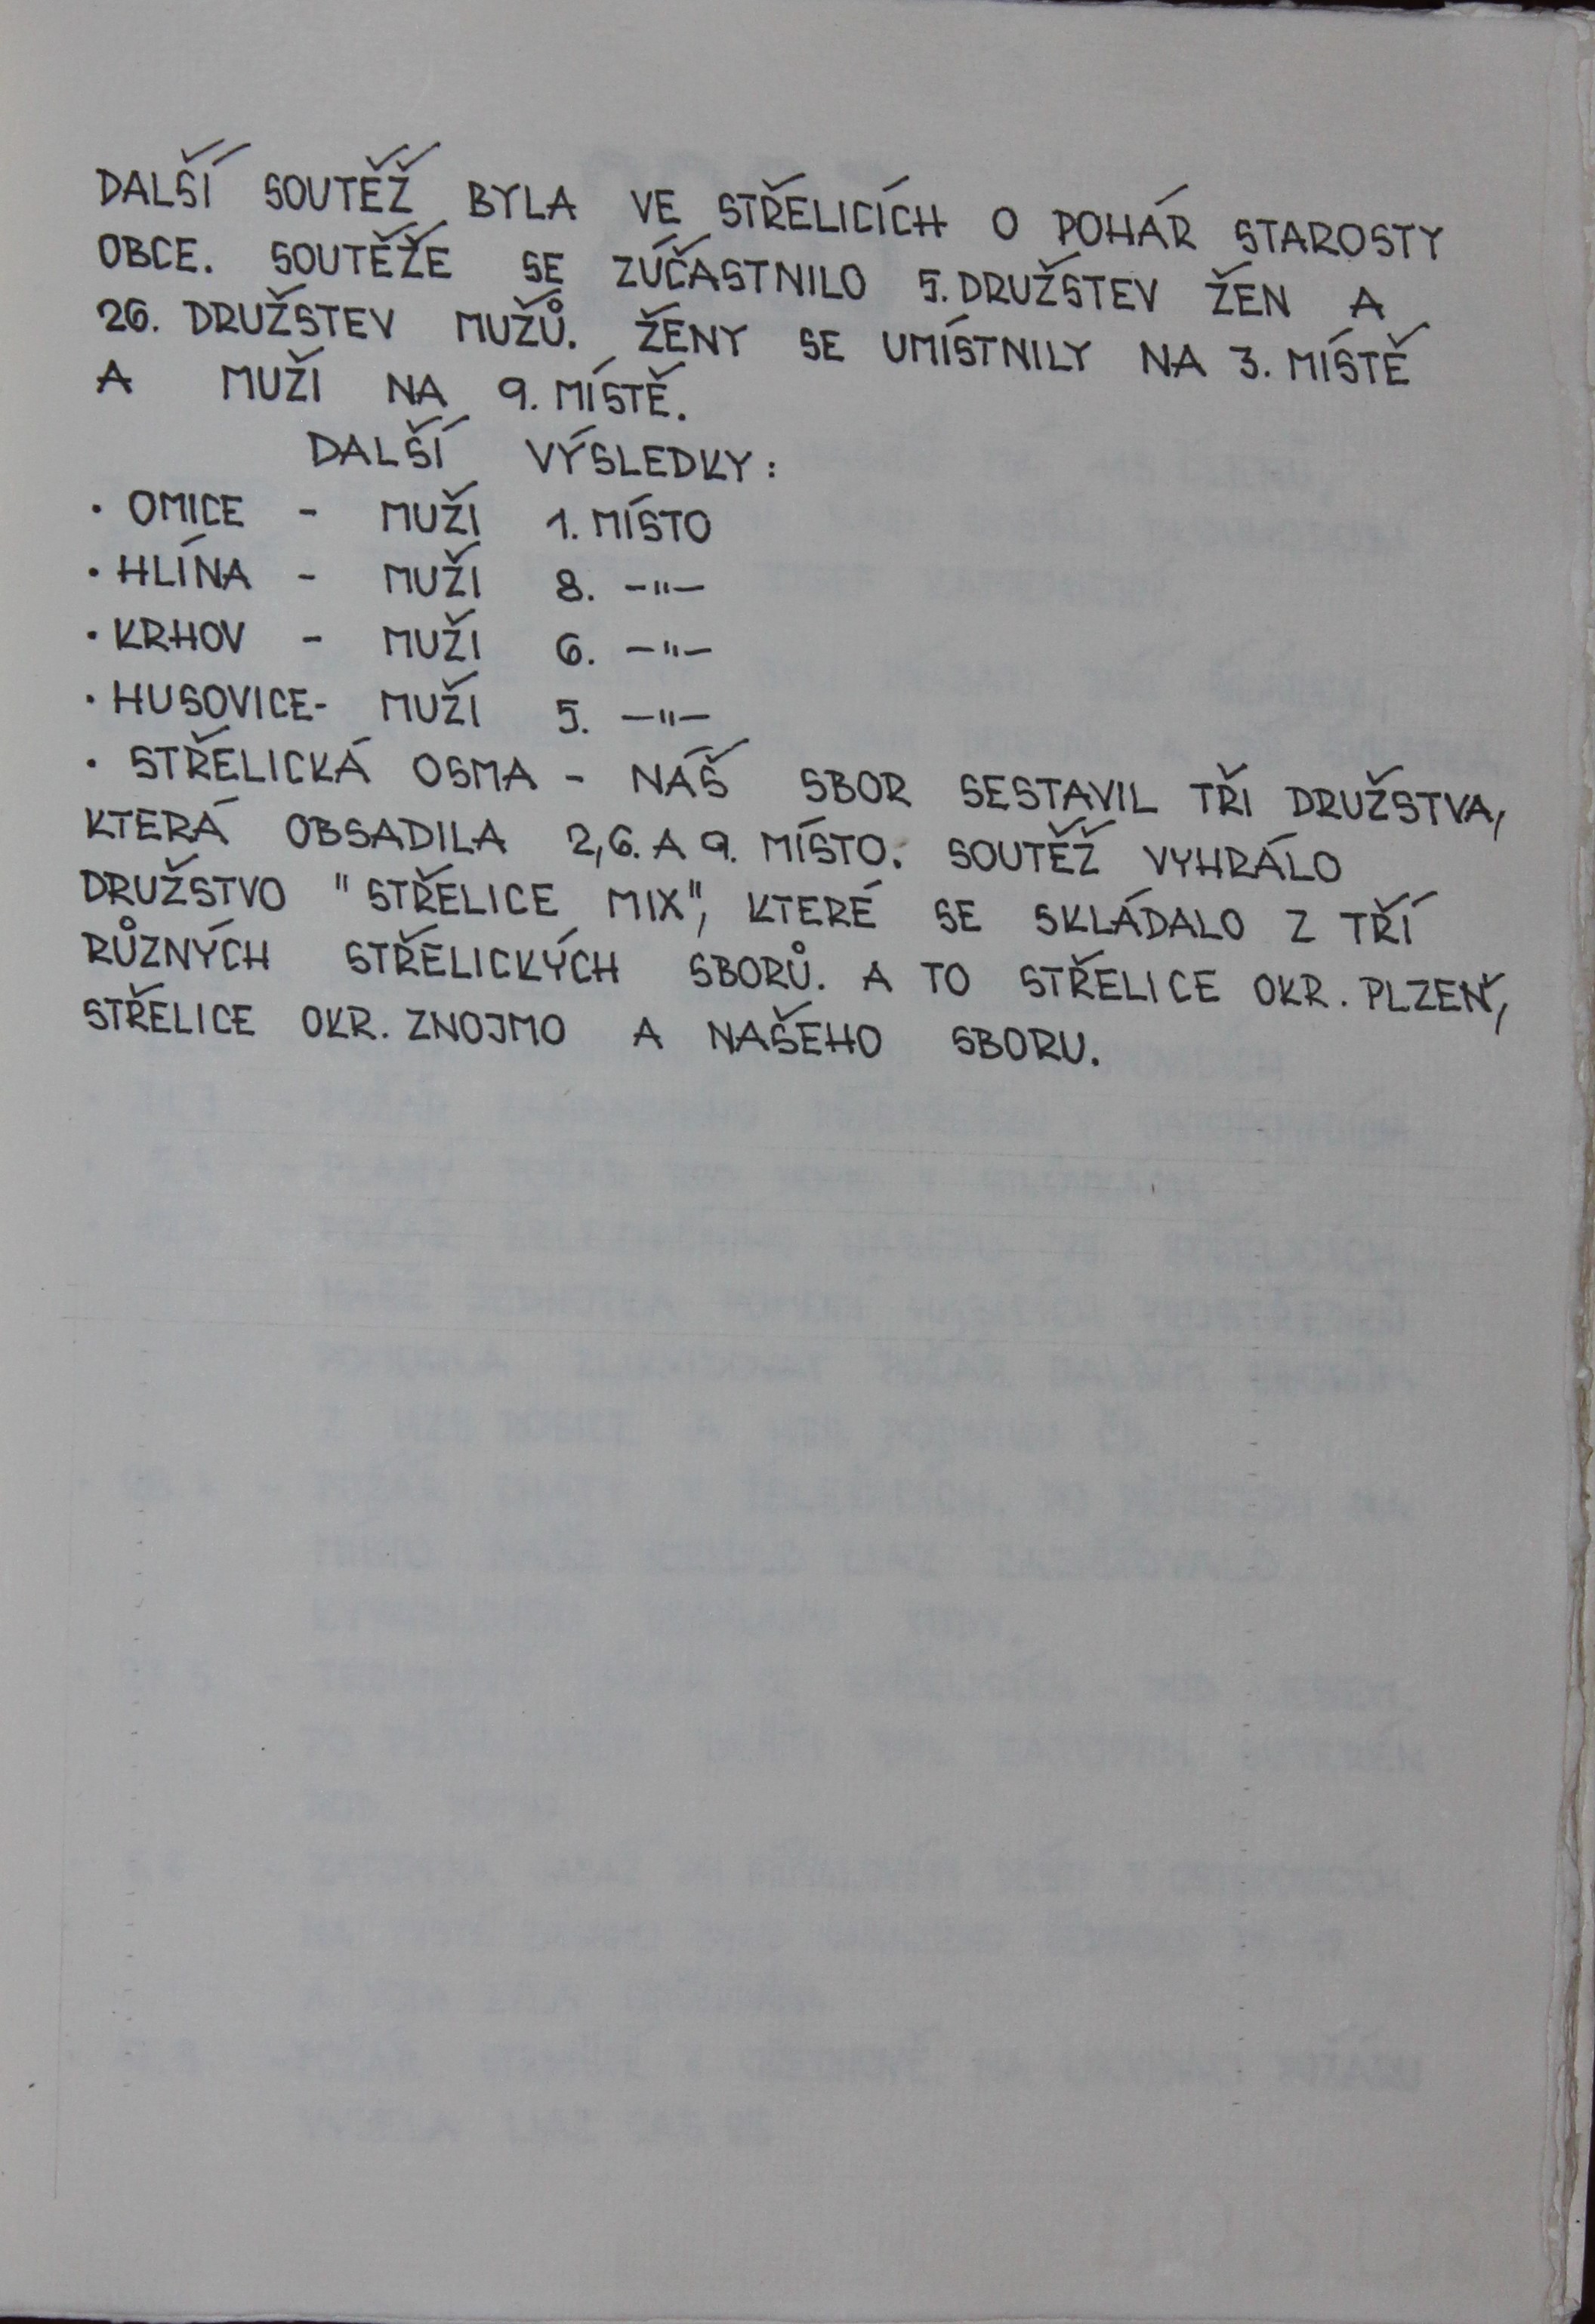 DALŠÍ SOUTĚŽ BYLA VE STŘELICÍCH O POHÁR STAROSTY
OBCE. SOUTĚŽE SE ZÚČASTNILO 5. DRUŽSTEV ŽEN A
26. DRUŽSTEV MUŽŮ. ŽENY SE UMÍSTNILY NA 3. MÍSTĚ
A MUŽI NA 9. MÍSTĚ.
DALŠÍ VÝSLEDKY:
• OMICE - MUŽI 1. MÍSTO
• HLÍNA - MUŽI 8. -"-
• KRHOV - MUŽI 6. -"-
• HUSOVICE- MUŽI 5. -"-
• STŘELICKÁ OSMA - NÁŠ SBOR SESTAVIL TŘI DRUŽSTVA,
KTERÁ OBSADILA 2,6. A 9. MÍSTO. SOUTĚŽ VYHRÁLO
DRUŽSTVO "STŘELICE MIX", KTERÉ SE SKLÁDALO Z TŘÍ
RŮZNÝCH STŘELICKÝCH SBORŮ. A TO STŘELICE OKR. PLZEŇ,
STŘELICE OKR. ZNOJMO A NAŠEHO SBORU.